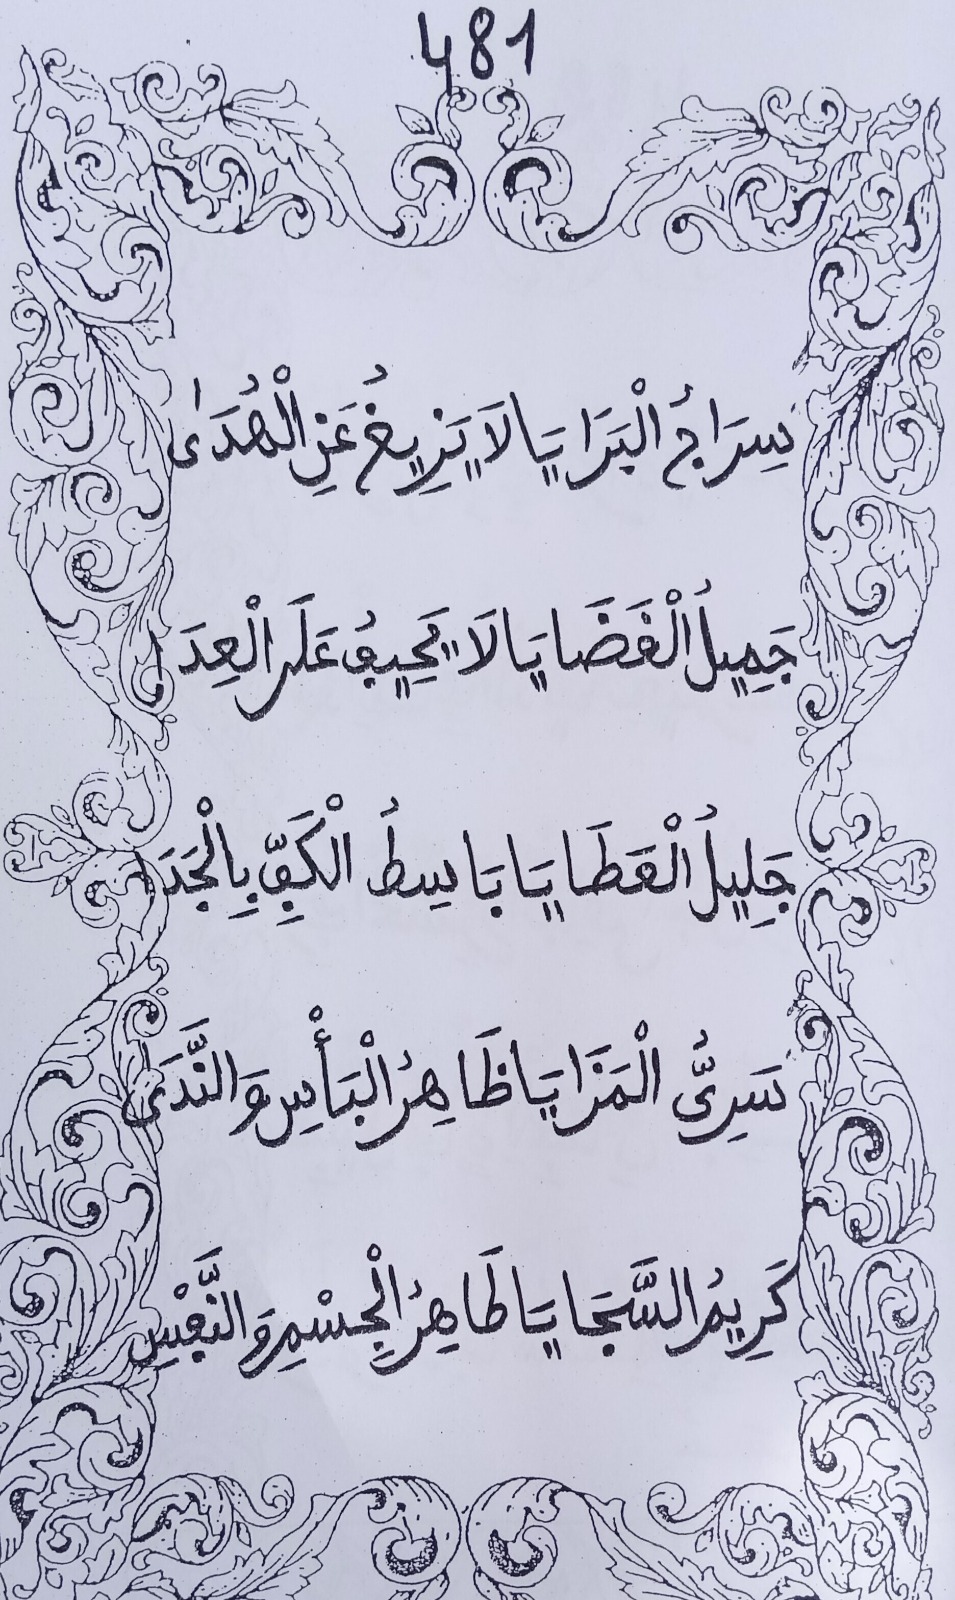 481
سِرَاجُ الْبَرَايَا لَا يَزِيغُ عَنِ الْهُدَىٰ
جَمِيلُ الْقَضَايَا لَا يَحِيفُ عَلَى الْعِدَا
جَلِيلُ الْعَطَايَا بَاسِطُ الْكَفِّ بِالْجَدَا
سَرِيُّ الْمَزَايَا ظَاهِرُ الْبَأْسِ وَالنَّدَىٰ
كَرِيمُ السَّجَايَا طَاهِرُ الْجِسْمِ وَالنَّفْسِ